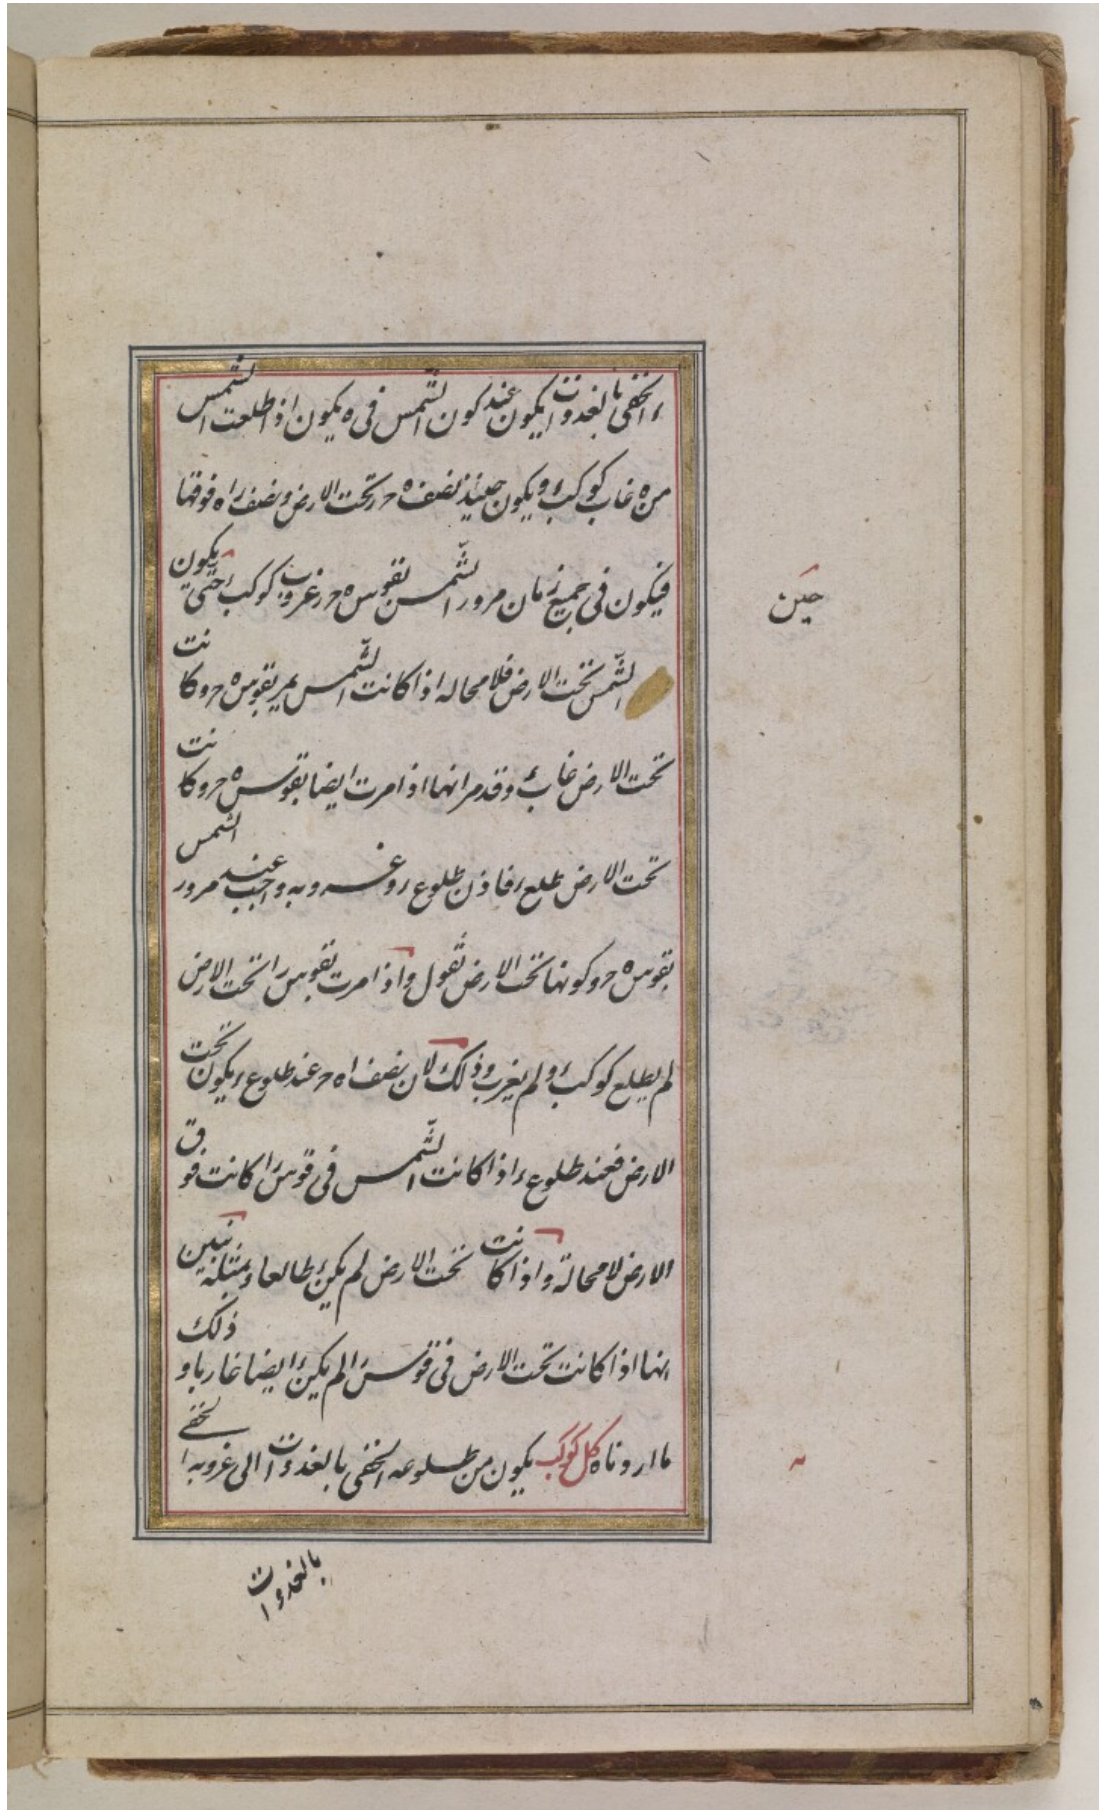 ء الخفى بالغدوات يكون عند كون الشمس فى ه يكون اذا طلعت الشمس
من ه غاب كوكب ء ويكون حينئذ نصف ه ح ر تحت الارض ونصف ر ا ه فوقها
فيكون فى جميع زمان مرور الشمس بقوس ه ح ر غروب كوكب ء حتى يكون
حين
الشمس تحت الارض فلا محاله اذا كانت الشمس يمر بقوس ه ح ر وكانت
تحت الارض غاب ء وقد مر انها اذا مرت ايضا بقوس ه ح ر وكانت
تحت الارض طلع ء فاذن طلوع ء وغروبه واجب عند مرور الشمس
بقوس ه ح ر وكونها تحت الارض نقول واذا مرت بقوس ر ا تحت الارض
لم يطلع كوكب ء ولم يغرب وذلك لان نصف ا ه ح عند طلوع ء يكون تحت
الارض فعند طلوع ء اذا كانت الشمس فى قوس ر ا كانت فوق
الارض لا محالة واذا كانت تحت الارض لم يكن ء طالعا وبمثله نبين
انها اذا كانت تحت الارض فى قوس ر ا لم يكن ء ايضا غاربا وذلك
ما اردناه كل كوكب يكون من طلوعه الخفى بالغدوات الى غروبه الخفى
بالغدوات